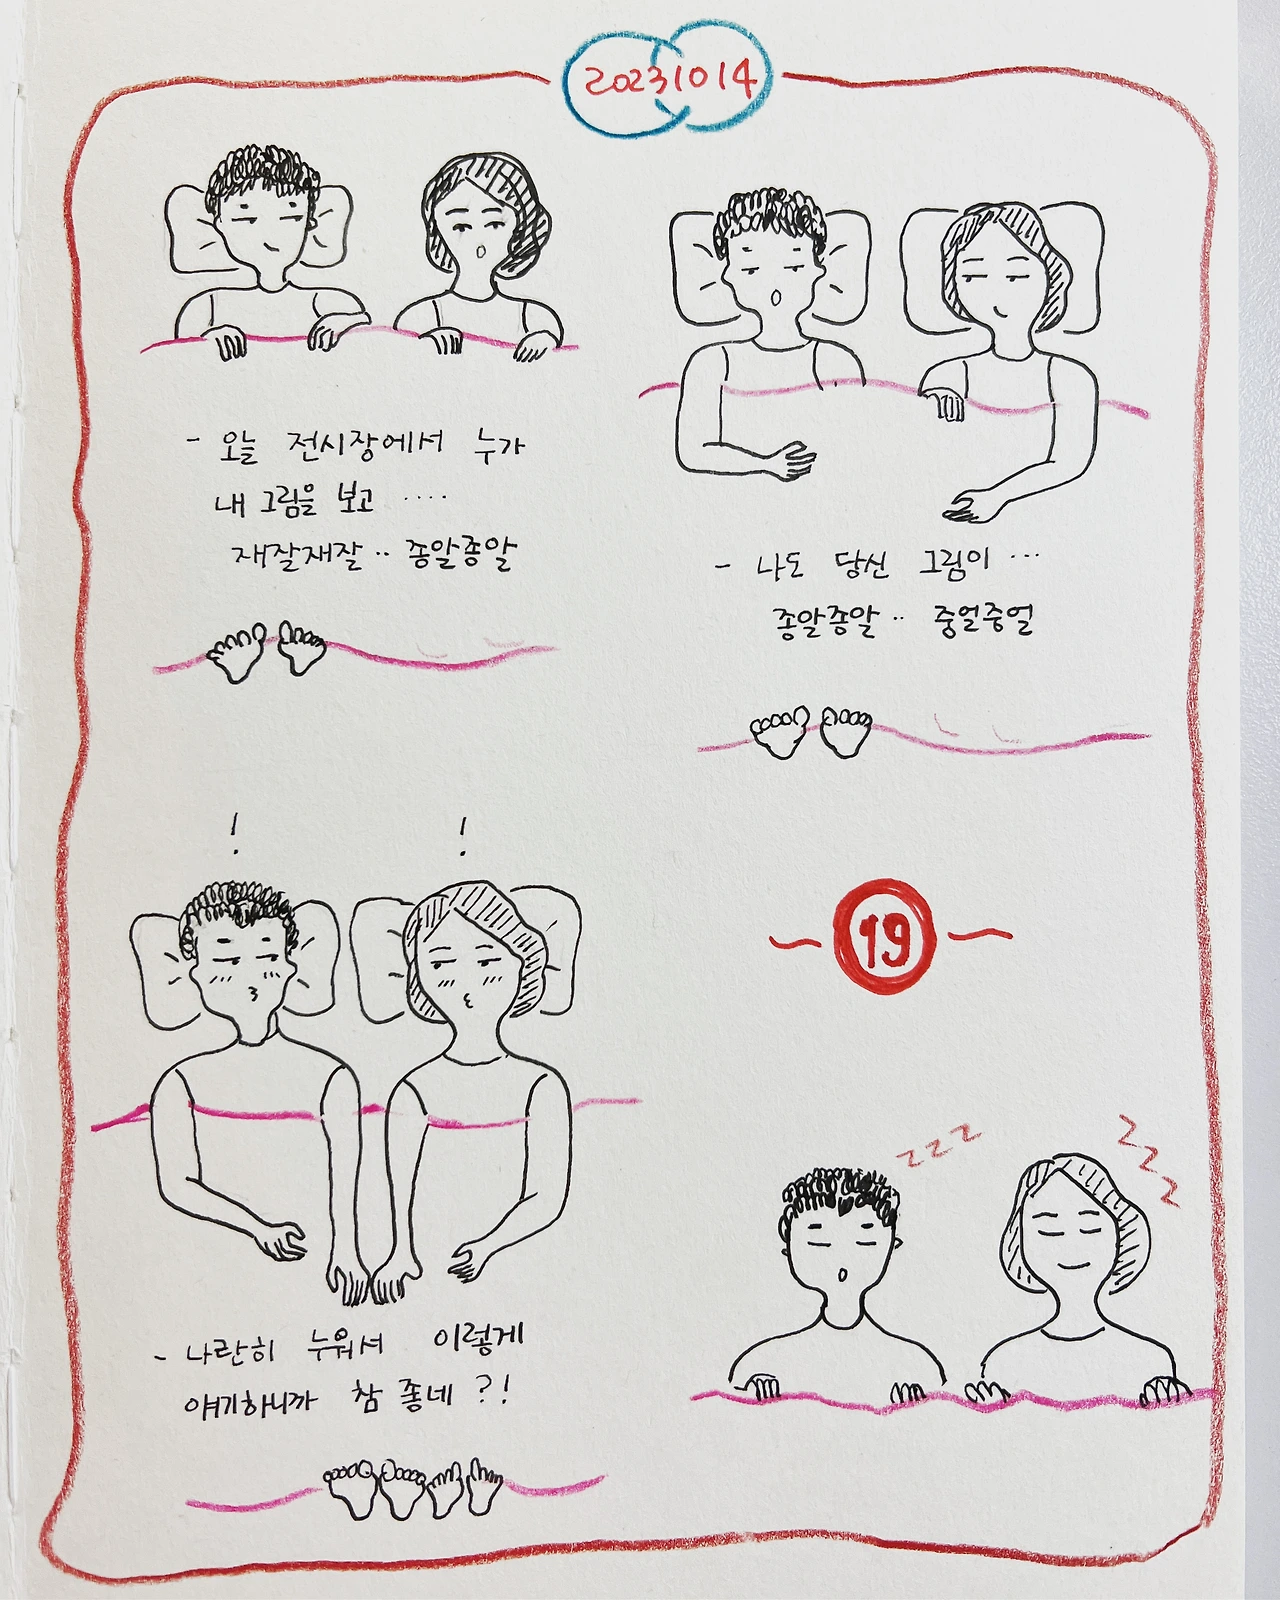 20231014
- 오늘 전시장에서 누가
내 그림을 보고 ····
재잘재잘·· 종알종알
- 나도 당신 그림이 ···
종알종알·· 중얼중얼
! !
- 나란히 누워서 이렇게
얘기하니까 참 좋네?!
~ 19 ~
z z z
z z z